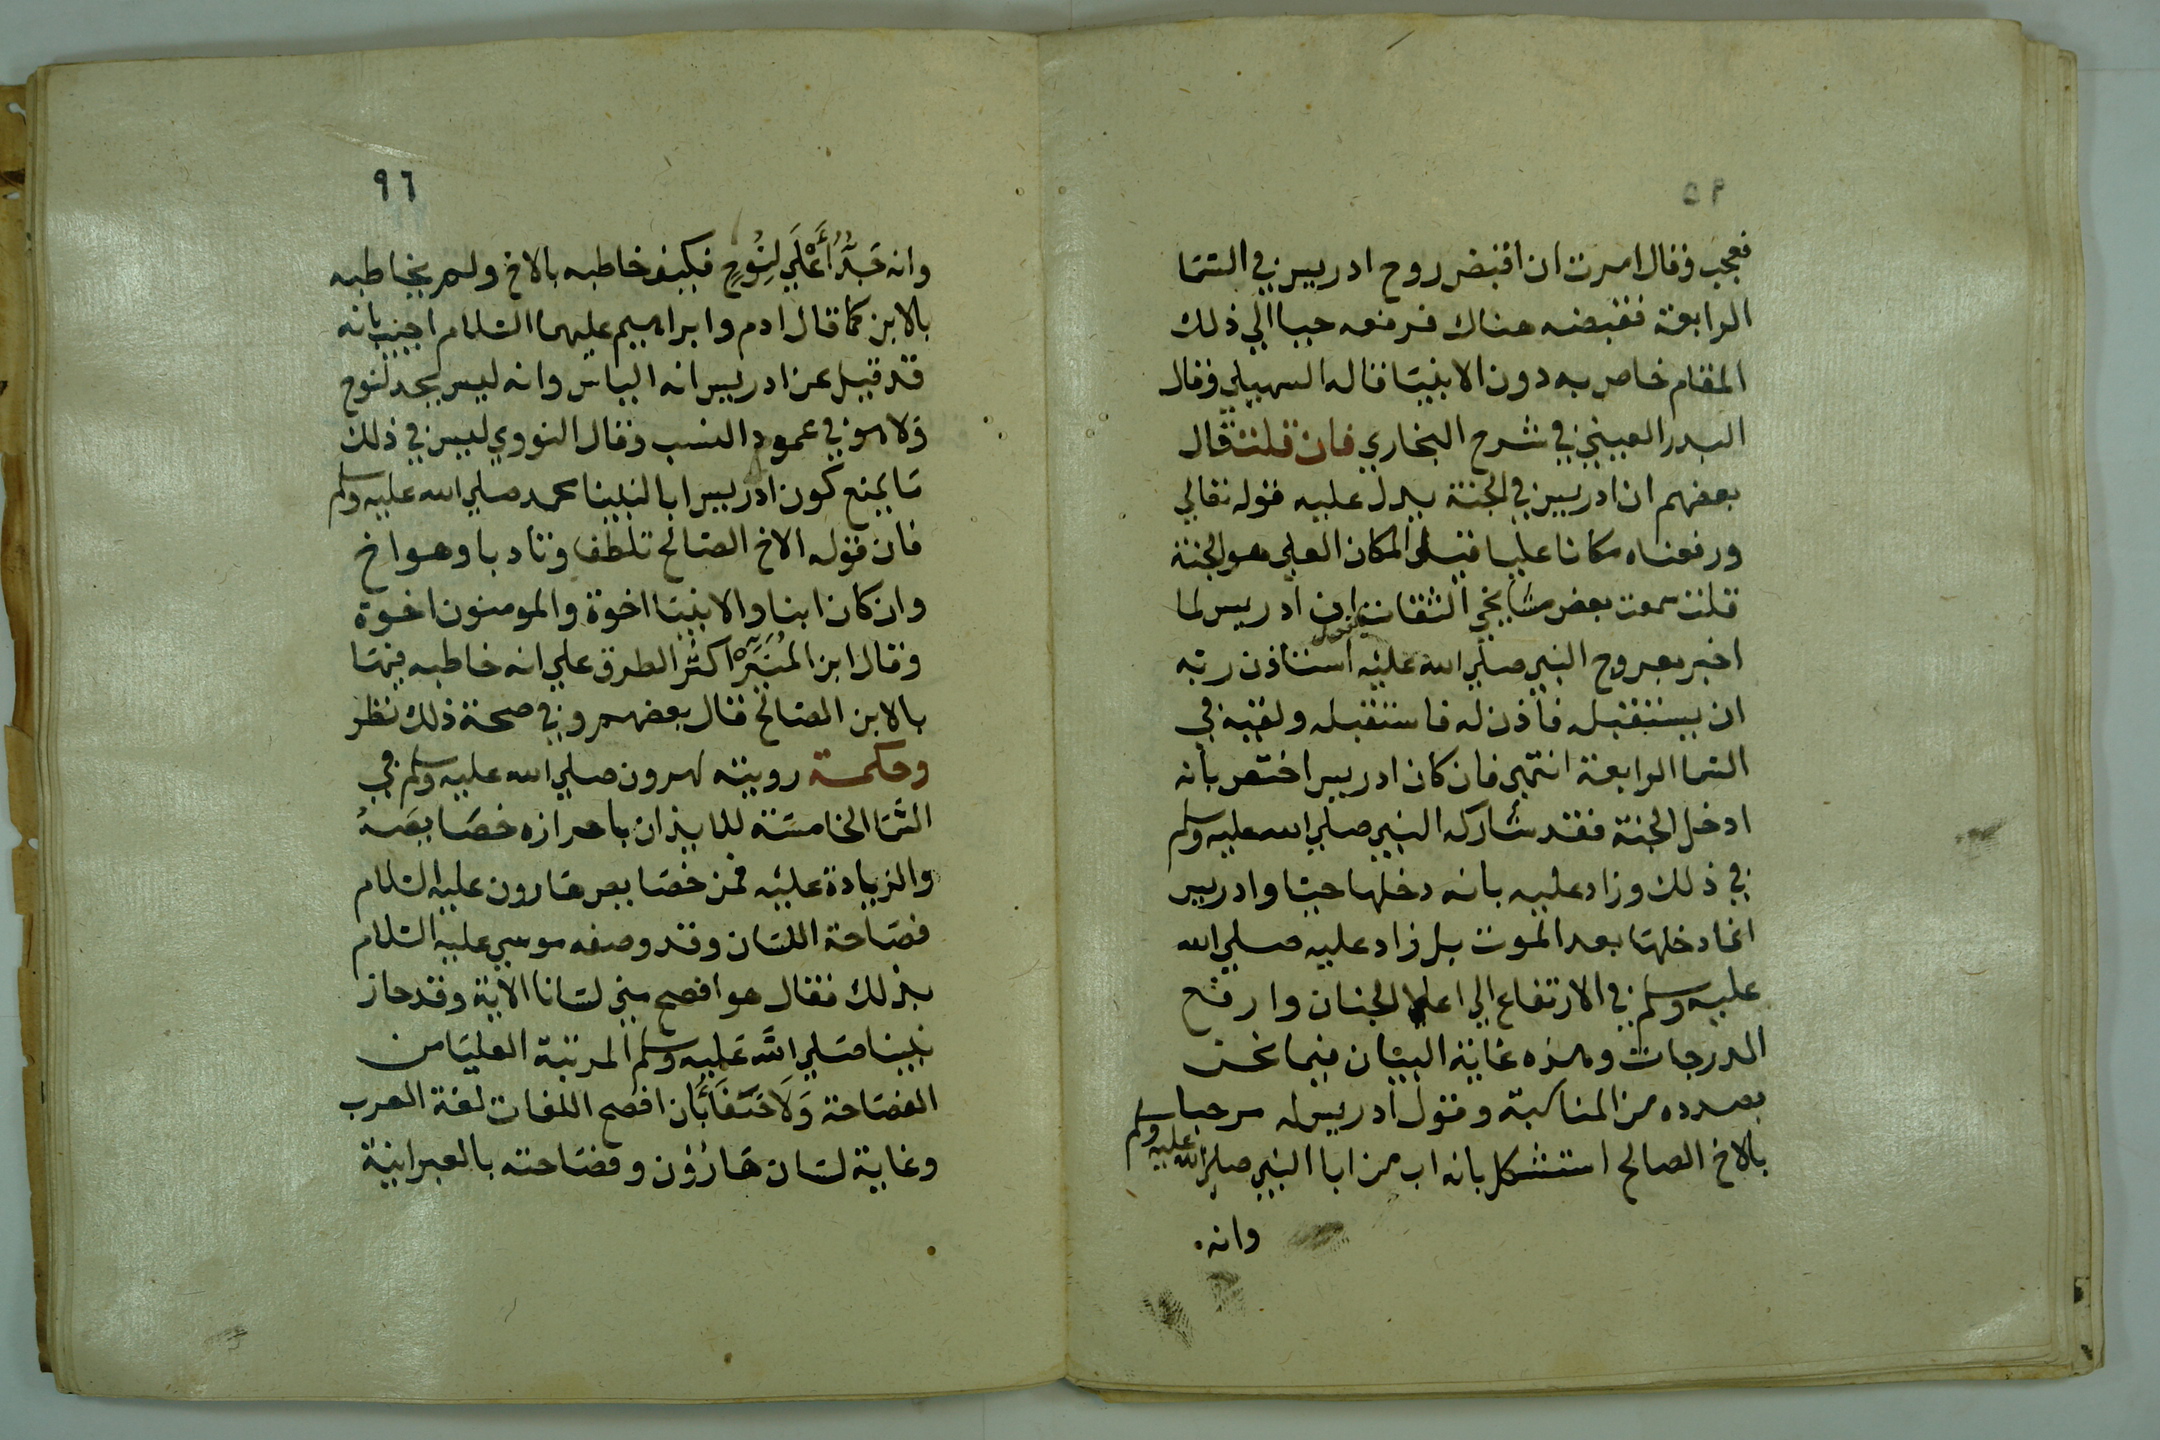 فعجب وقال امرت ان اقبض روح ادريس في السما
الرابعة فقبضه هناك فرفعه حيا الي ذلك
المقام خاص به دون الانبيا قاله السهيلي وقال
البدر العيني في شرح البخاري فان قلت قال
بعضهم ان ادريس في الجنة يدل عليه قوله تعالي
ورفعناه مكانا عليا قيل المكان العلي هو الجنة
قلت سمعت بعض مشايخي الثقات ان ادريس لما
اخبر بعروج النبي صلي الله عليه استاذن ربه
ان يستقبله فأذن له فاستقبله ولقيه في
السما الرابعة انتهي فان كان ادريس اختص بأنه
ادخل الجنة فقد شاركه النبي صلي الله عليه وسلم
في ذلك وزاد عليه بانه دخلها حيا وادريس
انما دخلها بعد الموت بل زاد عليه صلي الله
عليه وسلم في الارتفاع الي اعلا الجنان وارفع
الدرجات وهذه غاية البيان فيما نحن
بصدده من المناسبة وقول ادريس له مرحبا
بالاخ الصالح استشكل بانه اب من ابا النبي صلي الله عليه وسلم
وانه.
٩٦
وانه جَدٌّ أَعْلَي لِنُوحٍ فكيف خاطبه بالاخ ولم يخاطبه
بالابن كما قال ادم وابراهيم عليهما السلام اجيب بانه
قد قيل عن ادريس انه الياس وانه ليس بجد لنوح
ولا هو في عمود النسب وقال النووي ليس في ذلك
ما يمنع كون ادريس ابا لنبينا محمد صلي الله عليه وسلم
فان قوله الاخ الصالح تلطفا وتادبا وهو اخ
وان كان ابنا والانبيا اخوة والمومنون اخوة
وقال ابن المُنَيِّر اكثر الطرق علي انه خاطبه فيها
بالابن الصالح قال بعضهم وفي صحة ذلك نظر
وحكمة رويته لهرون صلي الله عليه وسلم في
السما الخامسة للايذان باحرازه خصايصه
والزيادة عليه فمن خصايص هارون عليه السلام
فصاحة اللسان وقد وصفه موسي عليه السلام
بذلك فقال هو افصح مني لسانا الاية وقد حاز
نبينا صلي الله عليه وسلم المرتبة العليا من
الفصاحة وَلَا خَفَا بأن افصح اللغات لغة العرب
وغاية لسان هارون وفصاحته بالعبرانية